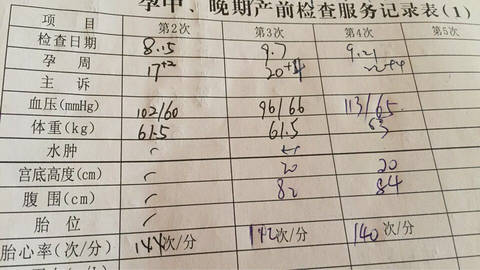 孕中、晚期产前检查服务记录表(1)
项 目 第2次 第3次 第4次 第5次
检查日期 8.15 9.7 9.21
孕 周 17+2 20+4 22+4
主 诉
血压(mmHg) 102/60 96/66 113/65
体重(kg) 61.5 61.5 63
水肿
宫底高度(cm) 20 20
腹 围(cm) 82 84
胎 位
胎心率(次/分) 144次/分 142次/分 140次/分